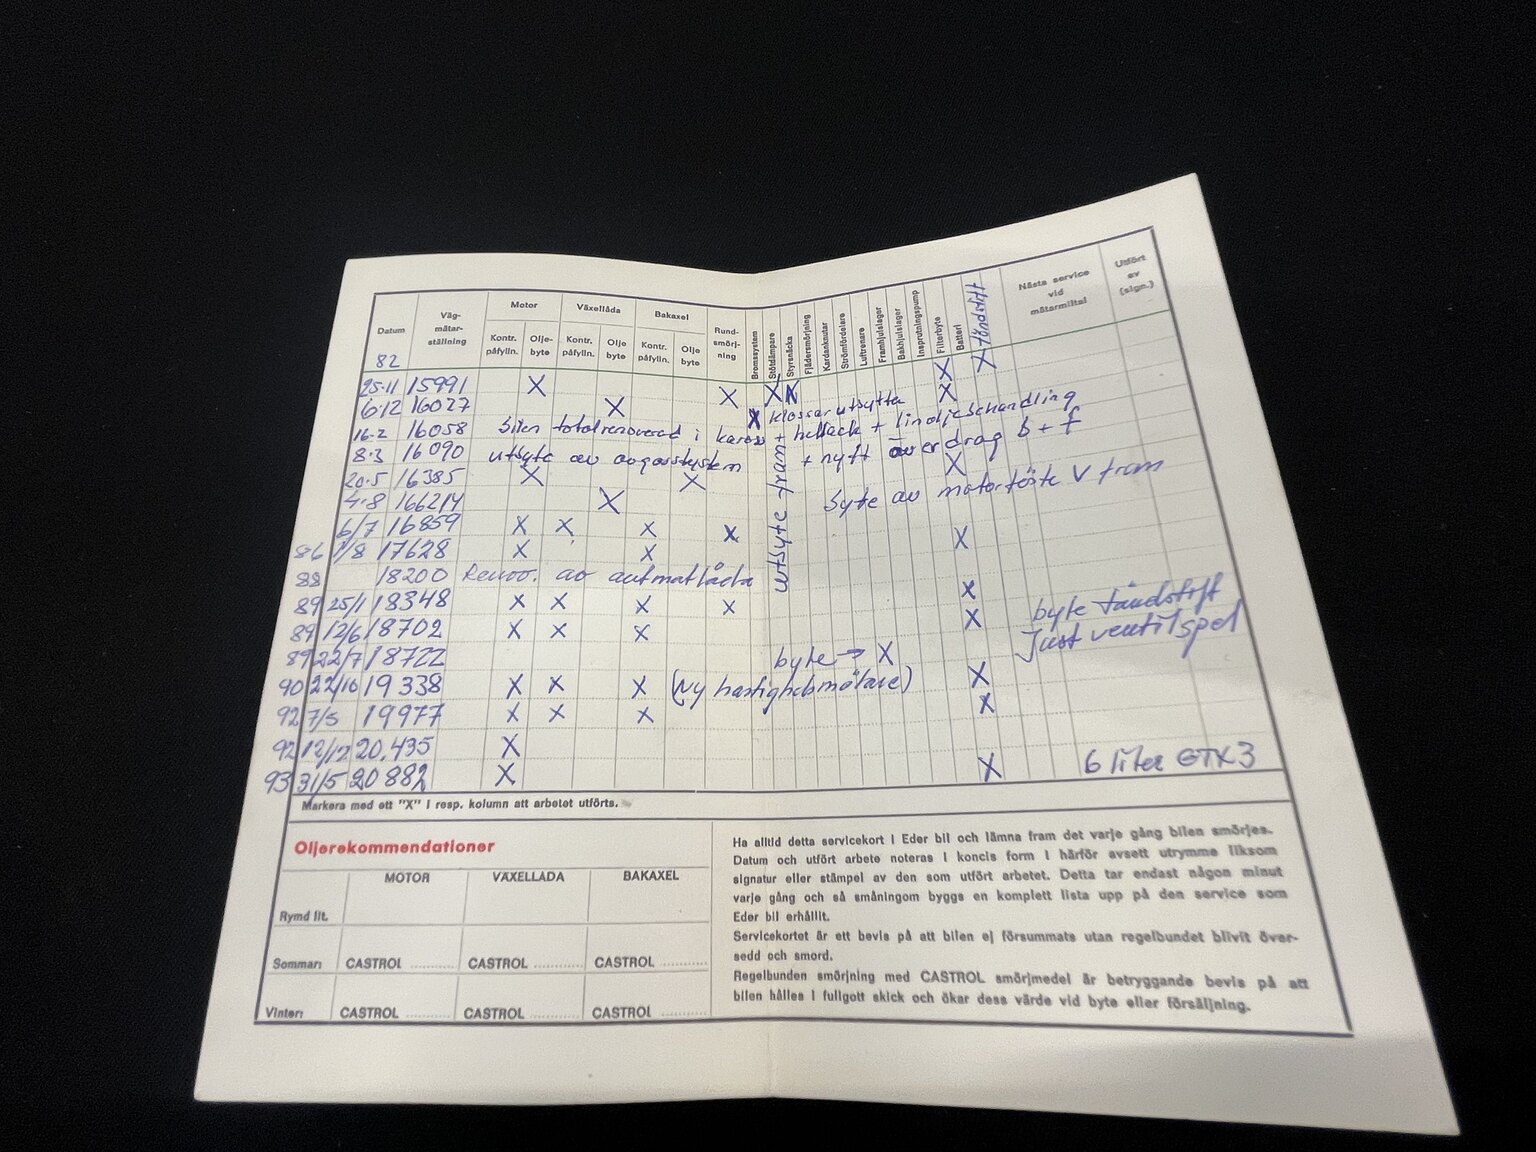 Datum
Väg-
mätar-
ställning
Motor
Växellåda
Bakaxel
Kontr. påfylln.
Olje- byte
Kontr. påfylln.
Olje byte
Kontr. påfylln.
Olje byte
Rund-
smörj-
ning
Bromssystem
Stötdämpare
Styrsnäcka
Fjädersmörjning
Kardanknutar
Strömfördelare
Luftrenare
Framhjulslager
Bakhjulslager
Insprutningspump
Filterbyte
Batteri
tändstift
Nästa service
vid
mätarmiltal
Utfört
av
(sign.)
82
25.11 15991 X X X X X X
6.12 16027 X X klossar utbytta X
16.2 16058 Bilen totalrenoverad i kaross + hellack + linoljebehandling
8.3 16090 utbyte av avgassystem + nytt överdrag b + f
20.5 16385 X X X
4.8 166214 X byte av motorfäste V fram
utbyte fram
6/7 16859 X X X X X
86 1/8 17628 X X
88 18200 Renov. av automatlåda
89 25/1 18348 X X X X X byte tändstift
89 12/6 18702 X X X X Just ventilspel
89 22/7 18722 byte → X
90 22/10 19338 X X X (Ny hastighetsmätare) X
92 7/5 19977 X X X X
92 12/12 20.435 X
93 31/5 20882 X X 6 liter GTX3
Markera med ett "X" i resp. kolumn att arbetet utförts.
Oljerekommendationer
MOTOR VÄXELLÅDA BAKAXEL
Rymd lit.
Sommar: CASTROL .......... CASTROL .......... CASTROL ..........
Vinter: CASTROL .......... CASTROL .......... CASTROL ..........
Ha alltid detta servicekort i Eder bil och lämna fram det varje gång bilen smörjes.
Datum och utfört arbete noteras i koncis form i härför avsett utrymme liksom
signatur eller stämpel av den som utfört arbetet. Detta tar endast någon minut
varje gång och så småningom byggs en komplett lista upp på den service som
Eder bil erhållit.
Servicekortet är ett bevis på att bilen ej försummats utan regelbundet blivit över-
sedd och smord.
Regelbunden smörjning med CASTROL smörjmedel är betryggande bevis på att
bilen hålles i fullgott skick och ökar dess värde vid byte eller försäljning.